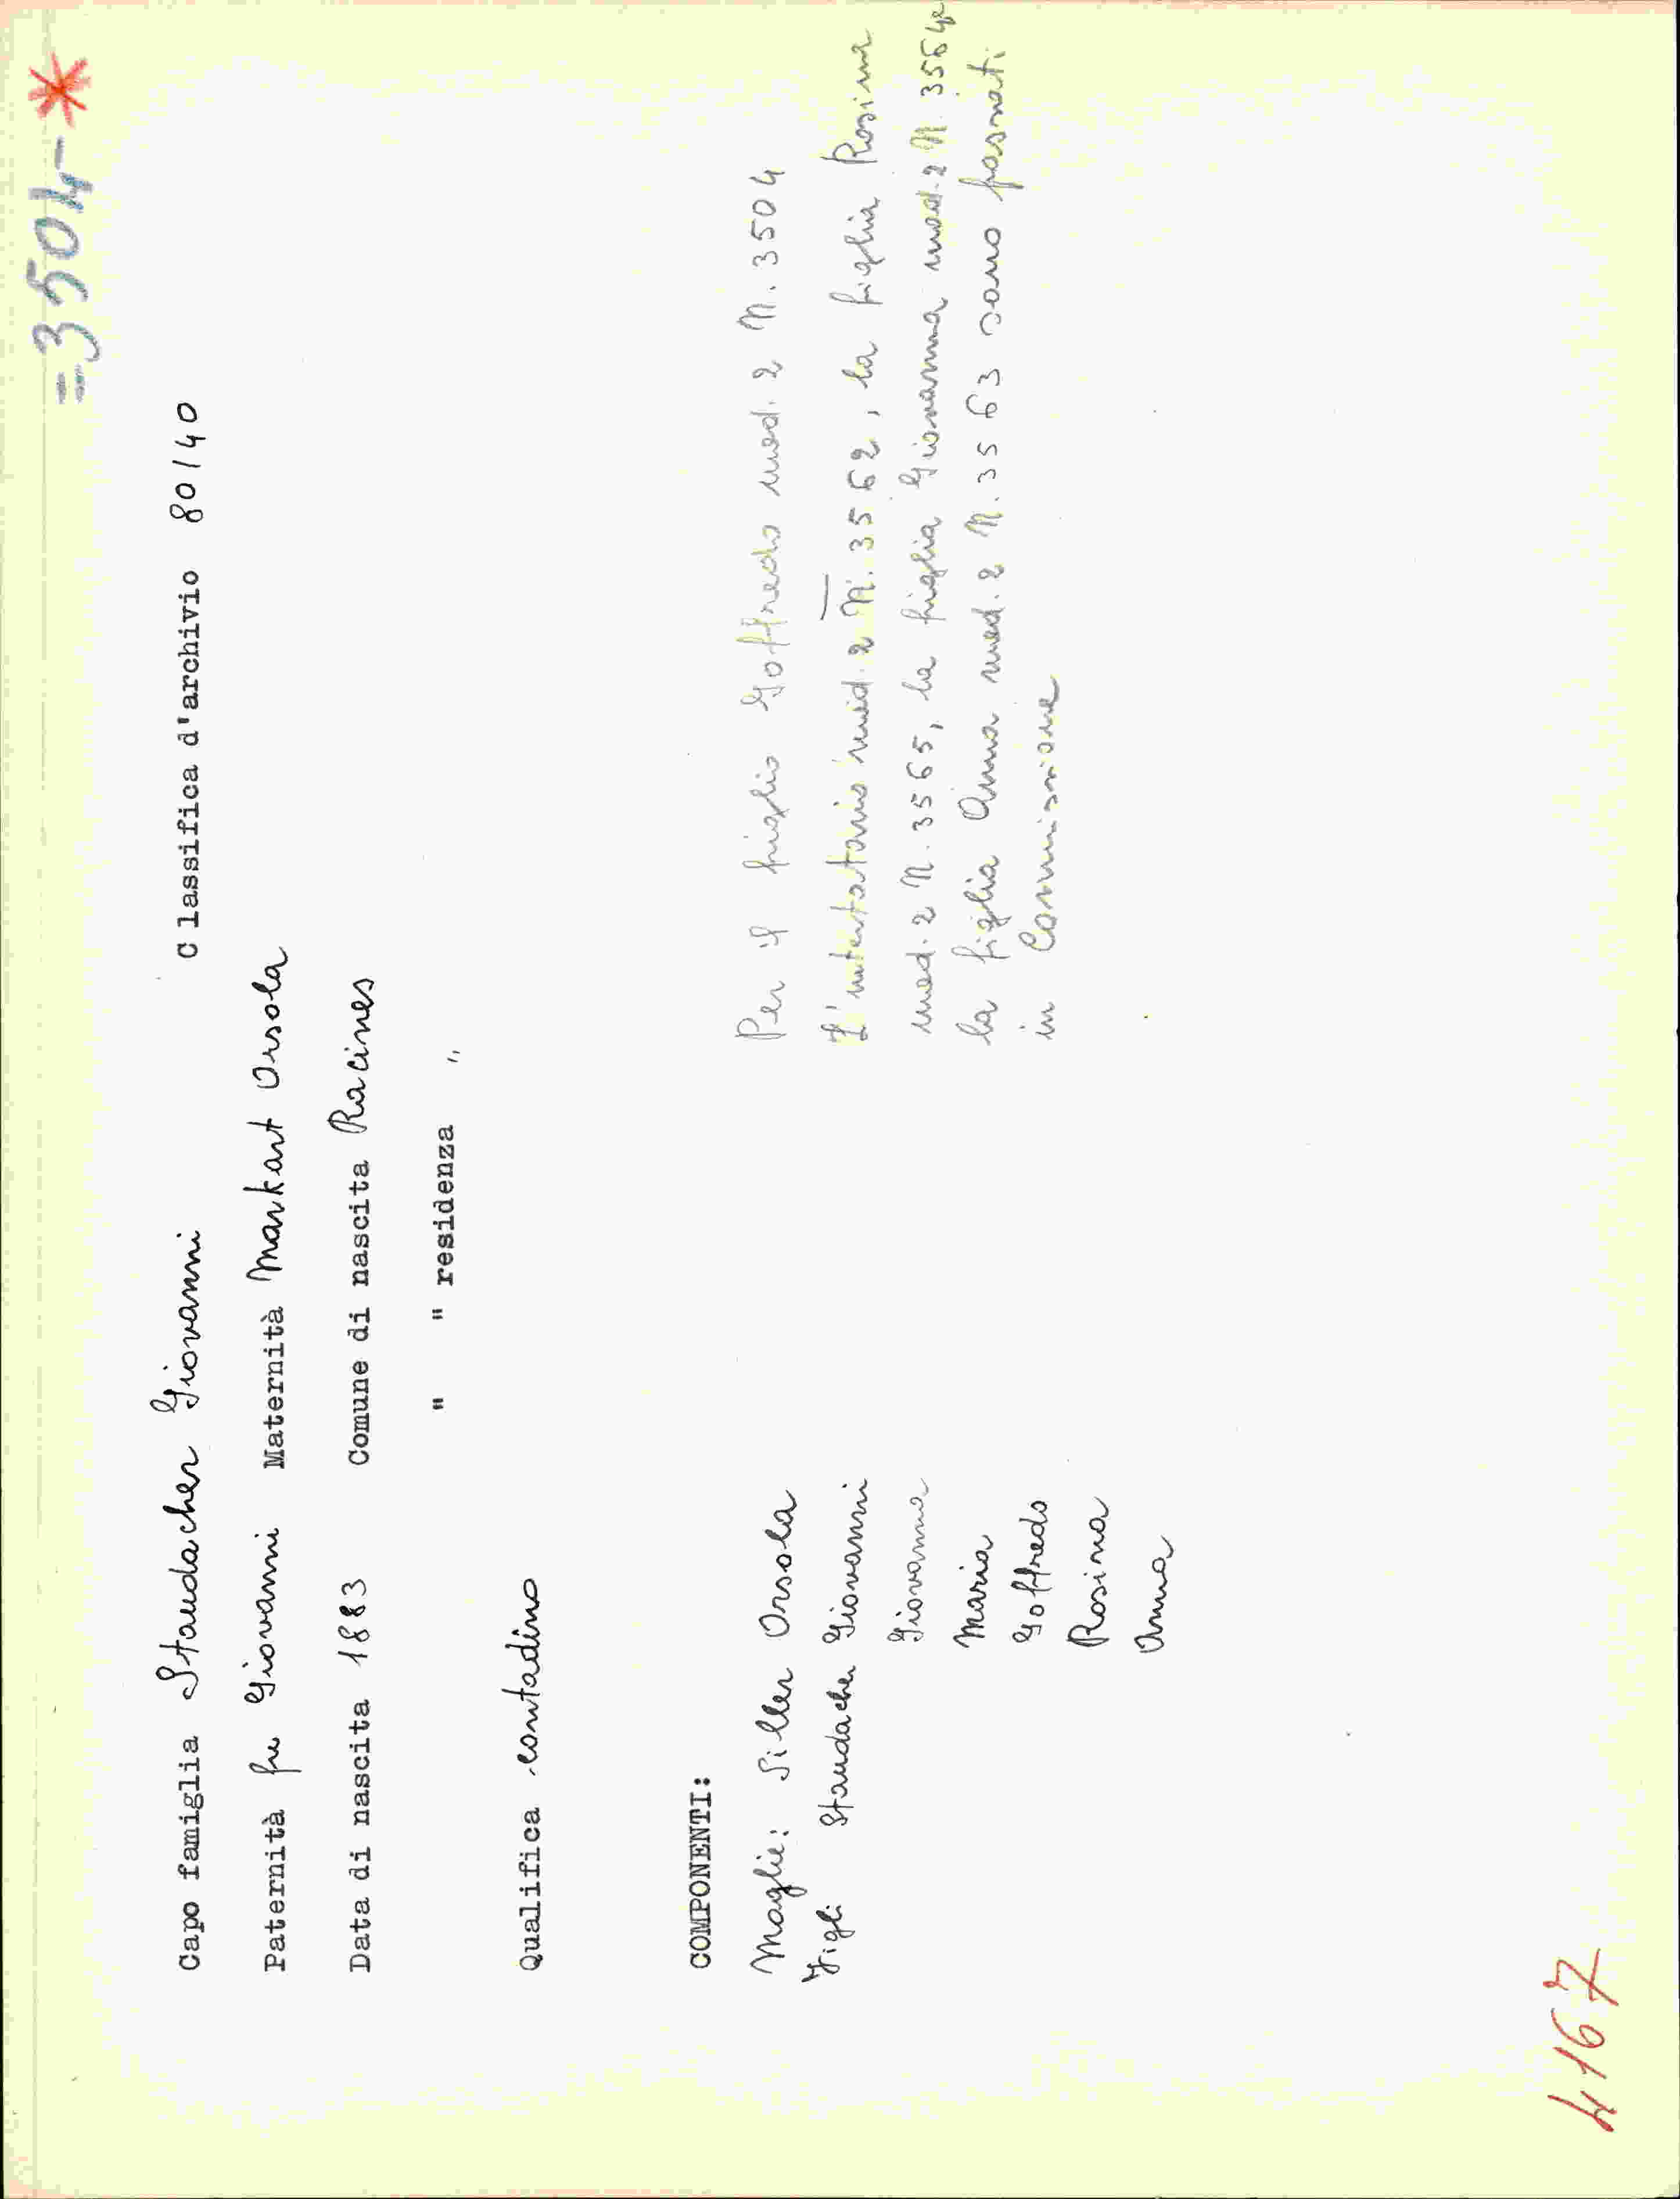 =3504- *
Capo famiglia Staudacher Giovanni Classifica d'archivio 80/40
Paternità fu Giovanni Maternità Markart Orsola
Data di nascita 1883 Comune di nascita Racines
" " residenza "
Qualifica contadino
COMPONENTI:
Moglie: Siller Orsola
Figli Staudacher Giovanni
Giovanna
Maria
Goffredo
Rosina
Anna
Per il figlio Goffredo mod. 2 N. 3504
L'intestatario mod. 2 N. 3562, la figlia Rosina
mod. 2 N. 3565, la figlia Giovanna mod. 2 N. 3564
la figlia Anna mod. 2 N. 3563 sono passati
in Commissione
4167